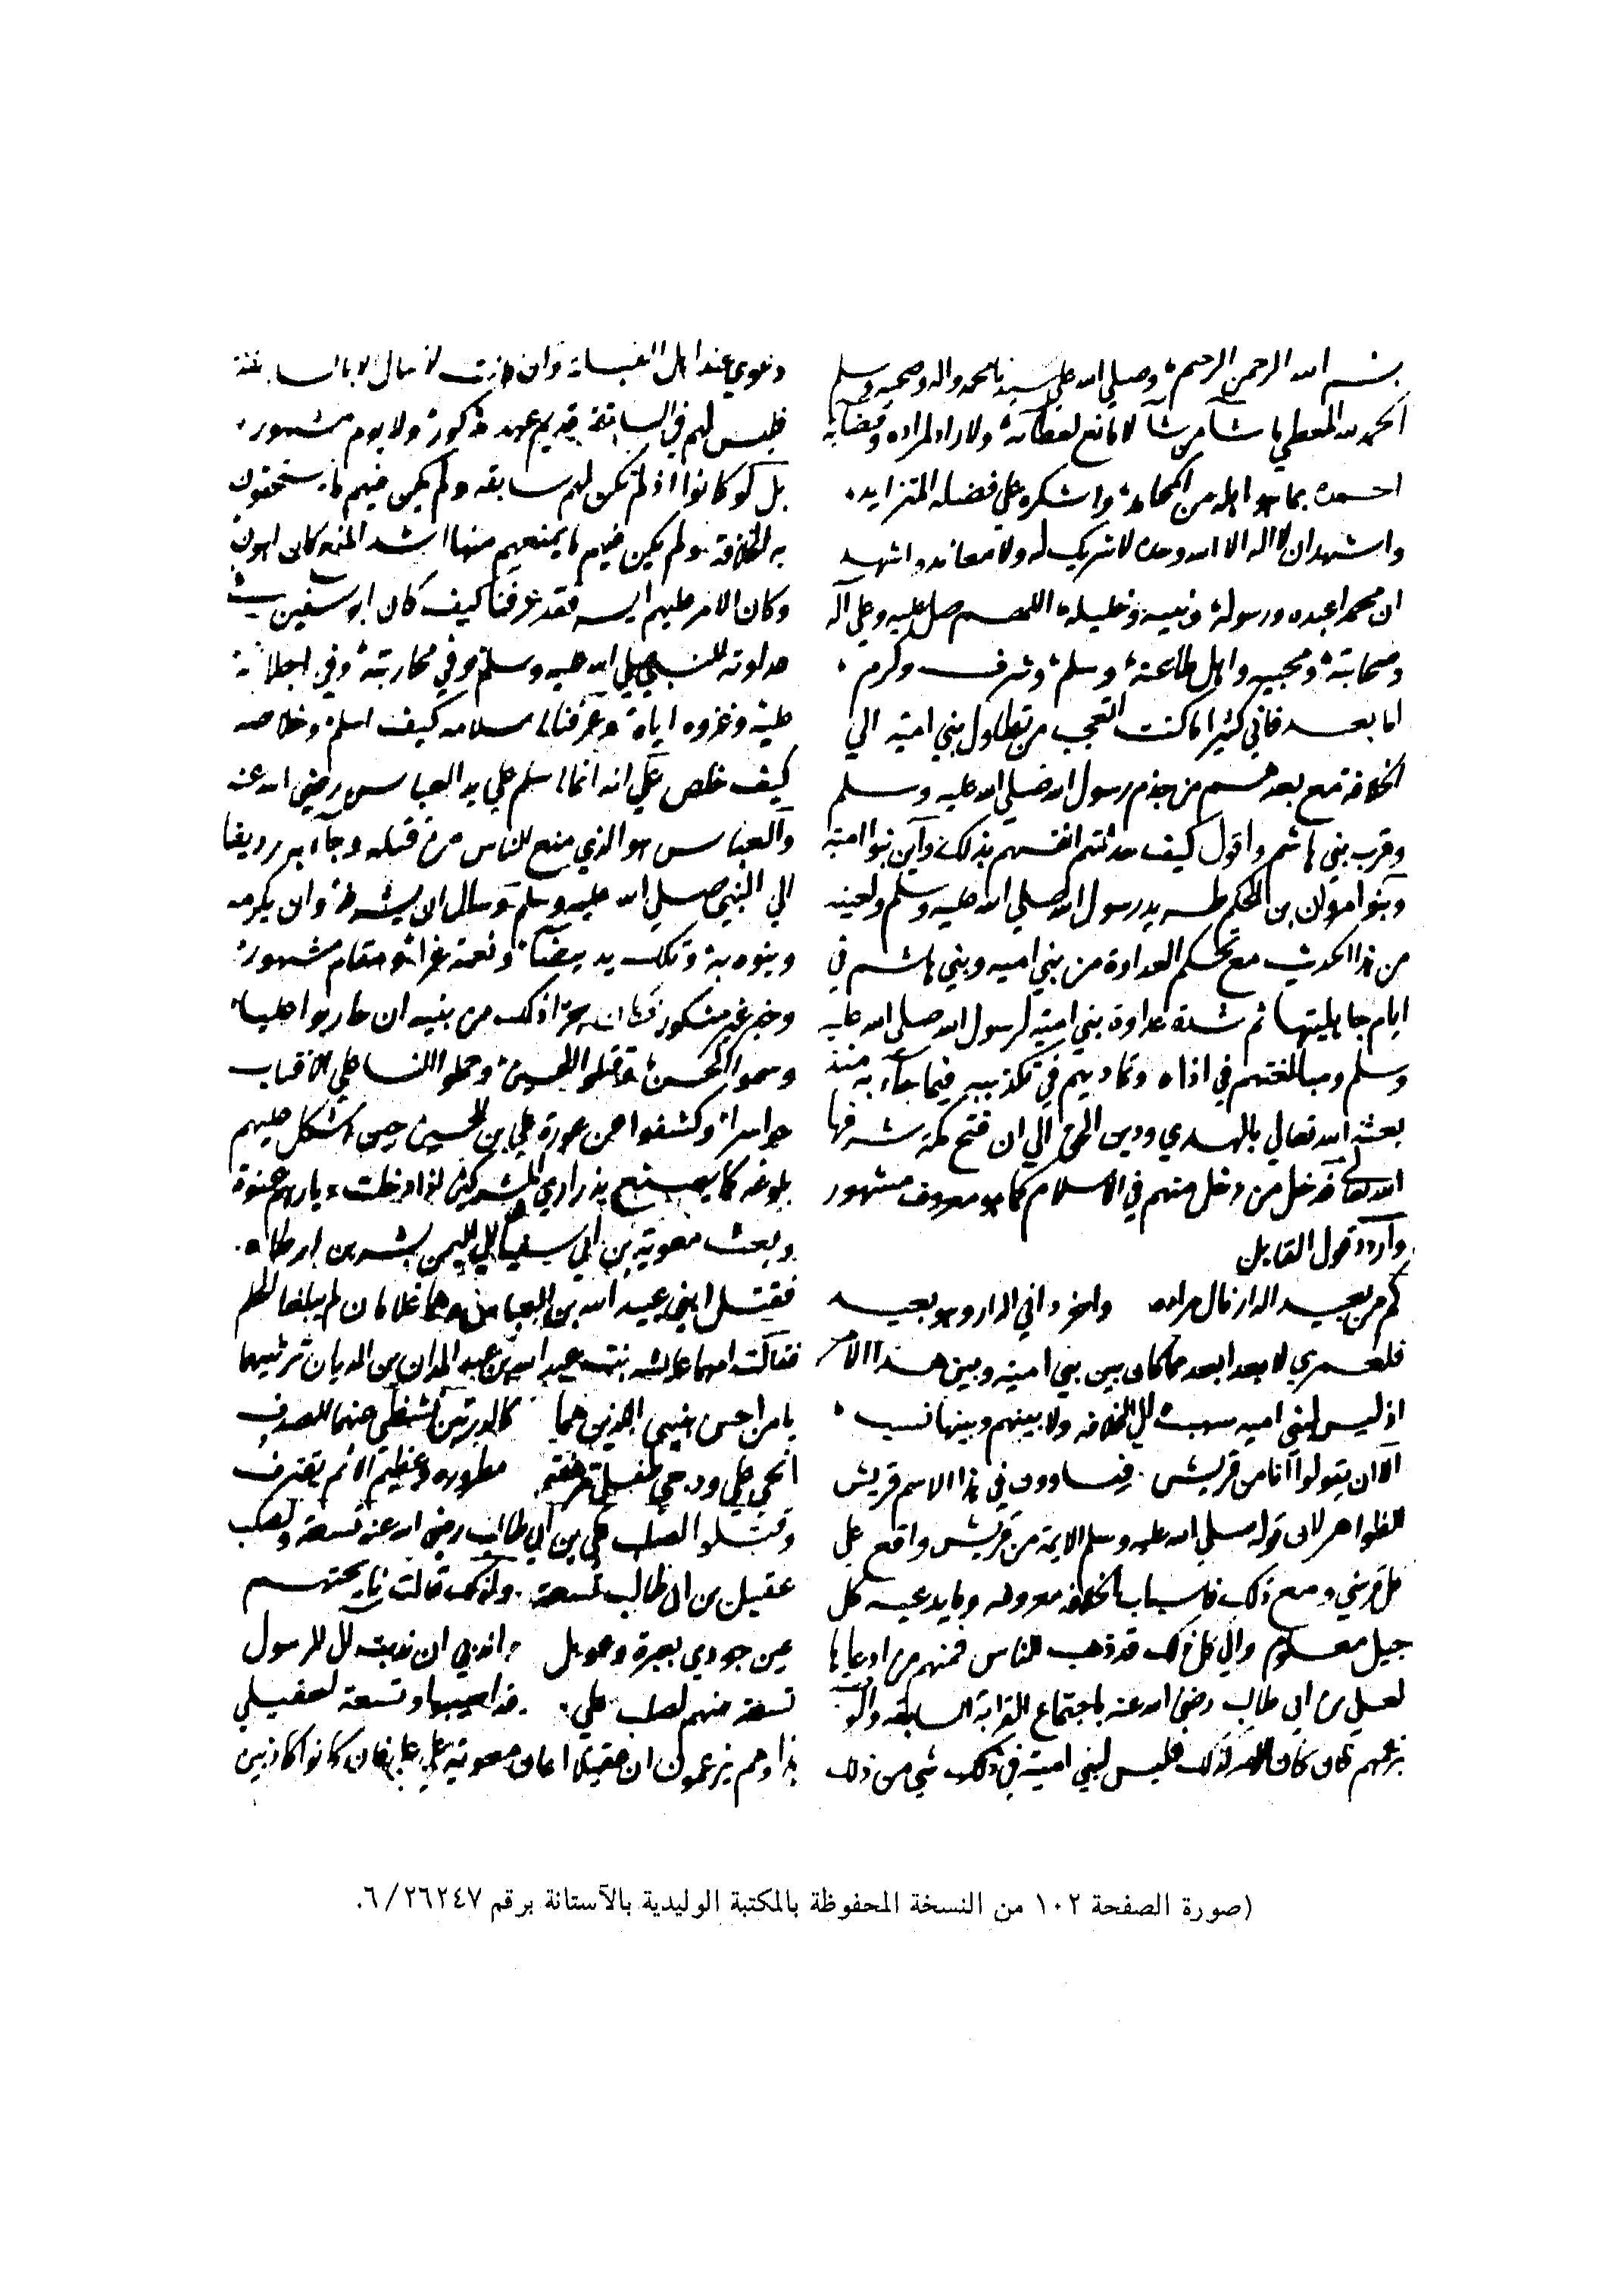 بسم الله الرحمن الرحيم وصلي الله علي سيدنا محمد واله وصحبه وسلم
الحمد لله المعطي ما شآ من شآ لا مانع لعطآئه ولا راد لمراده وقضآيه
احمده بما هو اهله من المحامد واشكره علي فضله المتزايد
واشهد ان لا اله الا الله وحده لا شريك له ولا معاند واشهد
ان محمدا عبده ورسوله ونبيه وخليله اللهم صل عليه وعلي آله
وصحابته ومحبيه واهل طاعته وسلم وشرف وكرم
اما بعد فاني كثيرا ما كنت اتعجب من تطاول بني امية الي
الخلافة مع بعدهم من جذم رسول الله صلي الله عليه وسلم
وقرب بني هاشم واقول كيف حدثتهم انفسهم بذلك وآين بنوا امية
وبنوا مروان بن الحكم طريد رسول الله صلي الله عليه وسلم ولعينه
من هذا الحديث مع تحكم العداوة من بني اميه وبني هاشم في
ايام جاهليتها ثم شدة عداوة بني امية لرسول الله صلي الله عليه
وسلم ومبالغتهم في اذاه وتماديهم في تكذيبه فيما جآء به منذ
بعثه الله تعالي بالهدي ودين الحق الي ان فتح مكة شرفها
الله تعالي فدخل من دخل منهم في الاسلام كما هو معروف مشهور
واردد قول القايل
كم من بعيد الدار نال مراده واخر داني الدار وهو بعيد
فلعمري لا بعد ابعد مما كان بين بني امية وبين هذا الامر
اذ ليس لبني اميه سبب الي الخلافه ولا بينهم وبينها نسب
الا ان يقولوا انا من قريش فيساوون في هذا الاسم قريش
الظواهر لان قوله صلي الله عليه وسلم الايمة من قريش واقع علي
كل قرشي ومع ذلك فاسباب الخلافه معروفه وما يدعيه كل
جيل معلوم والي كل ذلك قد ذهب الناس فمنهم من ادعاها
لعلي بن ابي طالب رضي الله عنه باجتماع القرابة السابقه والو
بزعمهم فان كان الامر كذلك فليس لبني امية في ذلك شي من ذلك
دعوي عند اهل القبلة وان
فليس لهم في السابقة قديم عهد مذكور ولا يوم مشهور
بل لو كانوا اذ لم تكن لهم سابقه ولم يكن فيهم ما يستحقون
به الخلافة ولم يكن فيهم ما يمنعهم منها اشد المنع كان اهون
وكان الامر عليهم ايسر فقد عرفنا كيف كان ابو سفين في
عداوته للنبي صلي الله عليه وسلم وفي محاربته وفي اجلابه
عليه وغزوه اياه وعرفنا اسلامه كيف اسلم وخلاصه
كيف خلص علي انه انما اسلم علي يد العباس رضي الله عنه
والعباس هو الذي منع الناس من قتله وجآء به رديفا
الي النبي صلي الله عليه وسلم وسال ان يشرفه وان يكرمه
وينوه به وتلك يد بيضآ ونعمة غرآ ومقام مشهور
وخبر غير منكور فكان جزا ذلك من بنيه ان حاربوا عليا
وسموا الحسن وقتلوا الحسين وحملوا النسا علي الاقتاب
حواسرا وكشفوا عن عورة علي بن الحسين حين اشكل عليهم
بلوغه كما يصنع بذراري المشركين اذا دخلت ديارهم عنوة
وبعث معوية بن ابي سفيان الي اليمن بشر بن ارطاه
فقتل ابني عبيد الله بن العباس وهما غلامان لم يبلغا الحلم
فقالت امهما عايشه بنت عبد الله بن عبد المدان بن الديان ترثيهما
يا من احس بنيي الذين هما كالدرتين تشظي عنهما الصدف
انحي علي ودجي طفلي مرهفة مطرورة وعظيم الاثم يقترف
وقتلوا لصلب علي بن ابي طالب رضي الله عنه تسعة ولصلب
عقيل بن ابي طالب تسعة ولذلك قالت نايحتهم
عين جودي بعبرة وعويل واندبي ان ندبت ال الرسول
تسعة منهم لصلب علي قد اصيبوا وتسعة لعقيل
هذا وهم يزعمون ان عقيلا اعان معوية علي علي فان كانوا كاذبين
(صورة الصفحة ١٠٢ من النسخة المحفوظة بالمكتبة الوليدية بالآستانة برقم ٢٦٢٤٧/٦.